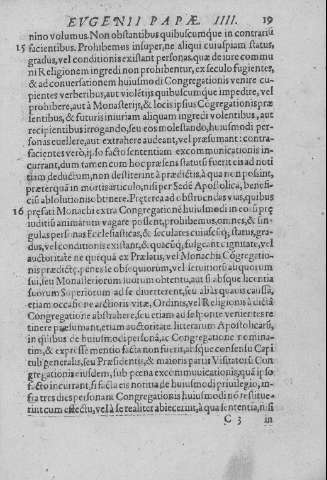 EVGENII PAPÆ IIII. 19
nino volumus. Non obstantibus quibuscumque in contrariũ
15 facientibus. Prohibemus insuper, ne aliqui cuiuspiam status,
gradus, vel conditionis existant personas, quæ de iure commu
ni Religionem ingredi non prohibentur, ex seculo fugientes,
& ad conuersationem huiusmodi Congregationis venire cu-
pientes verberibus, aut violẽtijs quibuscumque impedire, vel
prohibere, aut à Monasterijs, & locis ipsius Cõgregationis præ
sentibus, & futuris iniuriam aliquam ingredi volentibus, aut
recipientibus irrogando, seu eos molestando, huiusmodi per-
sonas euellere, aut extrahere audeant, vel præsumant: contra-
facientes verò, ipso facto sententiam excommunicationis in-
currant, dum tamen cum hoc præsens statutũ fuerit eis ad noti
tiam deductum, non destiterint à prædictis, à qua non possint,
præterquã in mortis articulo, nisi per Sedẽ Apostolica, benefi-
ciũ absolutionis obtinere. Præterea ad obstruendas vias, quibus
16 præfati Monachi extra Congregationẽ huiusmodi in eorũ præ
iuditiũ animarũ vagare possent, prohibemus omnes, & sin-
gulas personas Ecclesiasticas, & seculares cuiuscũq; status, gra-
dus, vel conditionis existant, & quacũq; fulgeant dignitate, vel
auctoritate ne quẽquã ex Prælatis, vel Monachis Cõgregatio-
nis prædictę, penes se obsequiorum, vel seruitiorũ aliquorum
sui, seu Monasteriorum suorum obtentu, aut si absque licentia
suorum Superiorum ad se diuerterent, seu alias quauis causa,
etiam occasione arctioris vitæ, Ordinis, vel Religionis à dicta
Congregatione abstrahere, seu etiam ad se sponte venientes re
tinere præsumant, etiam auctoritate litterarum Apostolicarũ,
in quibus de huiusmodi persona, ac Congregatione nomina-
tim, & expresse mentio facta non fuerit, absque consensu Capi
tuli generalis, seu Præsidentis, & maioris partis Visitatorũ Con
gregationis eiusdem, sub pœna excommunicationis, quã ipso
facto incurrant, si facta eis notitia de huiusmodi priuilegio, in-
fra tres dies personam Congregationis huiusmodi nõ restitue-
rint cum effectu, vel à se realiter abiecerint, à qua sententia, nisi
C 3 in